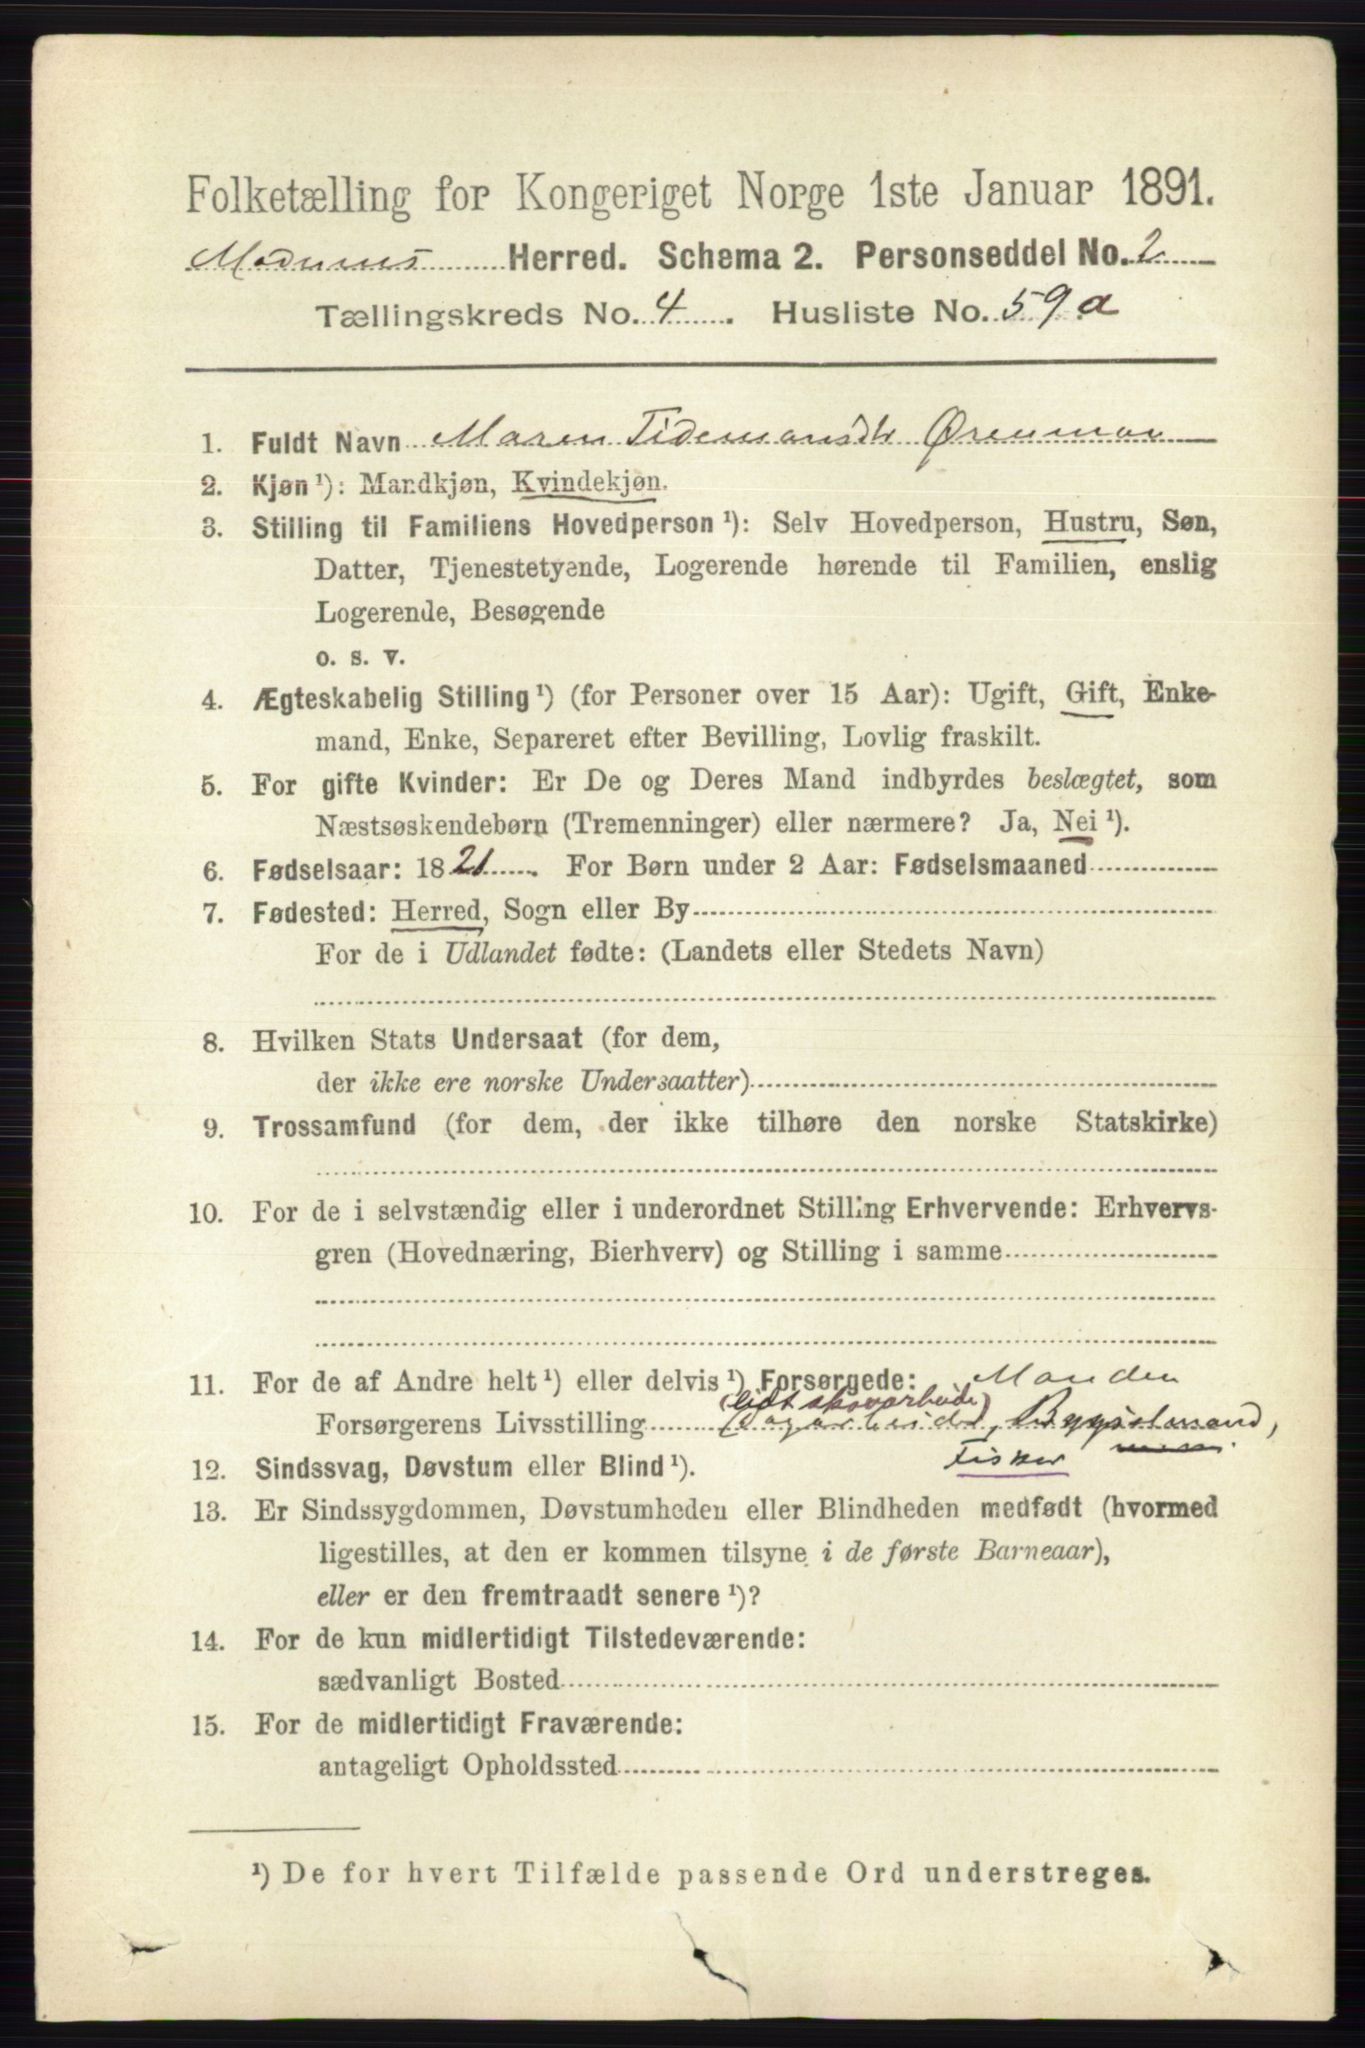 Folketælling for Kongeriget Norge 1ste Januar 1891.
Modums Herred. Schema 2. Personseddel No. 2
Tællingskreds No. 4. Husliste No. 59a
1. Fuldt Navn Maren Tidemansdtr Ørenmoen
2. Kjøn¹): Mandkjøn, Kvindekjøn.
3. Stilling til Familiens Hovedperson¹): Selv Hovedperson, Hustru, Søn,
Datter, Tjenestetyende, Logerende hørende til Familien, enslig
Logerende, Besøgende
o. s. v.
4. Ægteskabelig Stilling¹) (for Personer over 15 Aar): Ugift, Gift, Enke-
mand, Enke, Separeret efter Bevilling, Lovlig fraskilt.
5. For gifte Kvinder: Er De og Deres Mand indbyrdes beslægtet, som
Næstsøskendebørn (Tremenninger) eller nærmere? Ja, Nei¹).
6. Fødselsaar: 1821. For Børn under 2 Aar: Fødselsmaaned
7. Fødested: Herred, Sogn eller By
For de i Udlandet fødte: (Landets eller Stedets Navn)
8. Hvilken Stats Undersaat (for dem,
der ikke ere norske Undersaatter)
9. Trossamfund (for dem, der ikke tilhøre den norske Statskirke)
10. For de i selvstændig eller i underordnet Stilling Erhvervende: Erhvervs-
gren (Hovednæring, Bierhverv) og Stilling i samme
11. For de af Andre helt¹) eller delvis¹) Forsørgede: Manden
(lidt skovarbeide)
Forsørgerens Livsstilling Dagarbeider, Bygselmand,
Fisker
12. Sindssvag, Døvstum eller Blind¹).
13. Er Sindssygdommen, Døvstumheden eller Blindheden medfødt (hvormed
ligestilles, at den er kommen tilsyne i de første Barneaar),
eller er den fremtraadt senere¹)?
14. For de kun midlertidigt Tilstedeværende:
sædvanligt Bosted
15. For de midlertidigt Fraværende:
antageligt Opholdssted
¹) De for hvert Tilfælde passende Ord understreges.